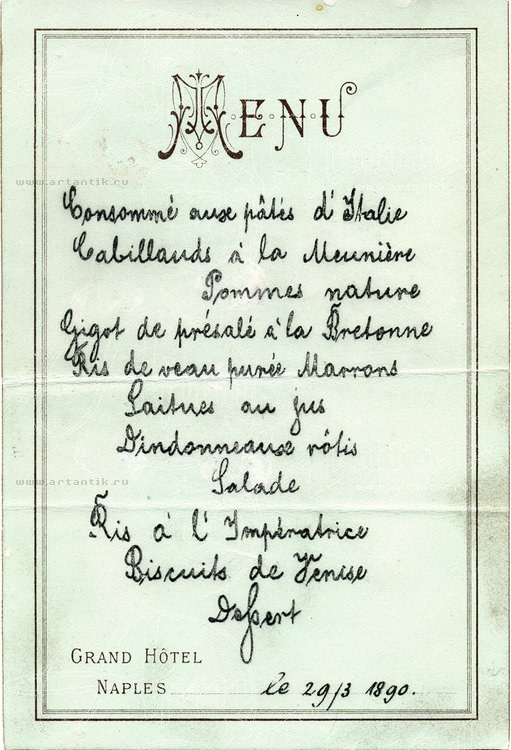 MENU
www.artantik.ru
Consommé aux pâtés d'Italie
Cabillauds à la Meunière
Pommes nature
Gigot de présalé à la Bretonne
Ris de veau purée Marrons
Laitues au jus
Dindonneaux rôtis
www.artantik.ru
Salade
Ris à l'Impératrice
Biscuits de Venise
Dessert
GRAND HÔTEL
NAPLES le 29/3 1890.